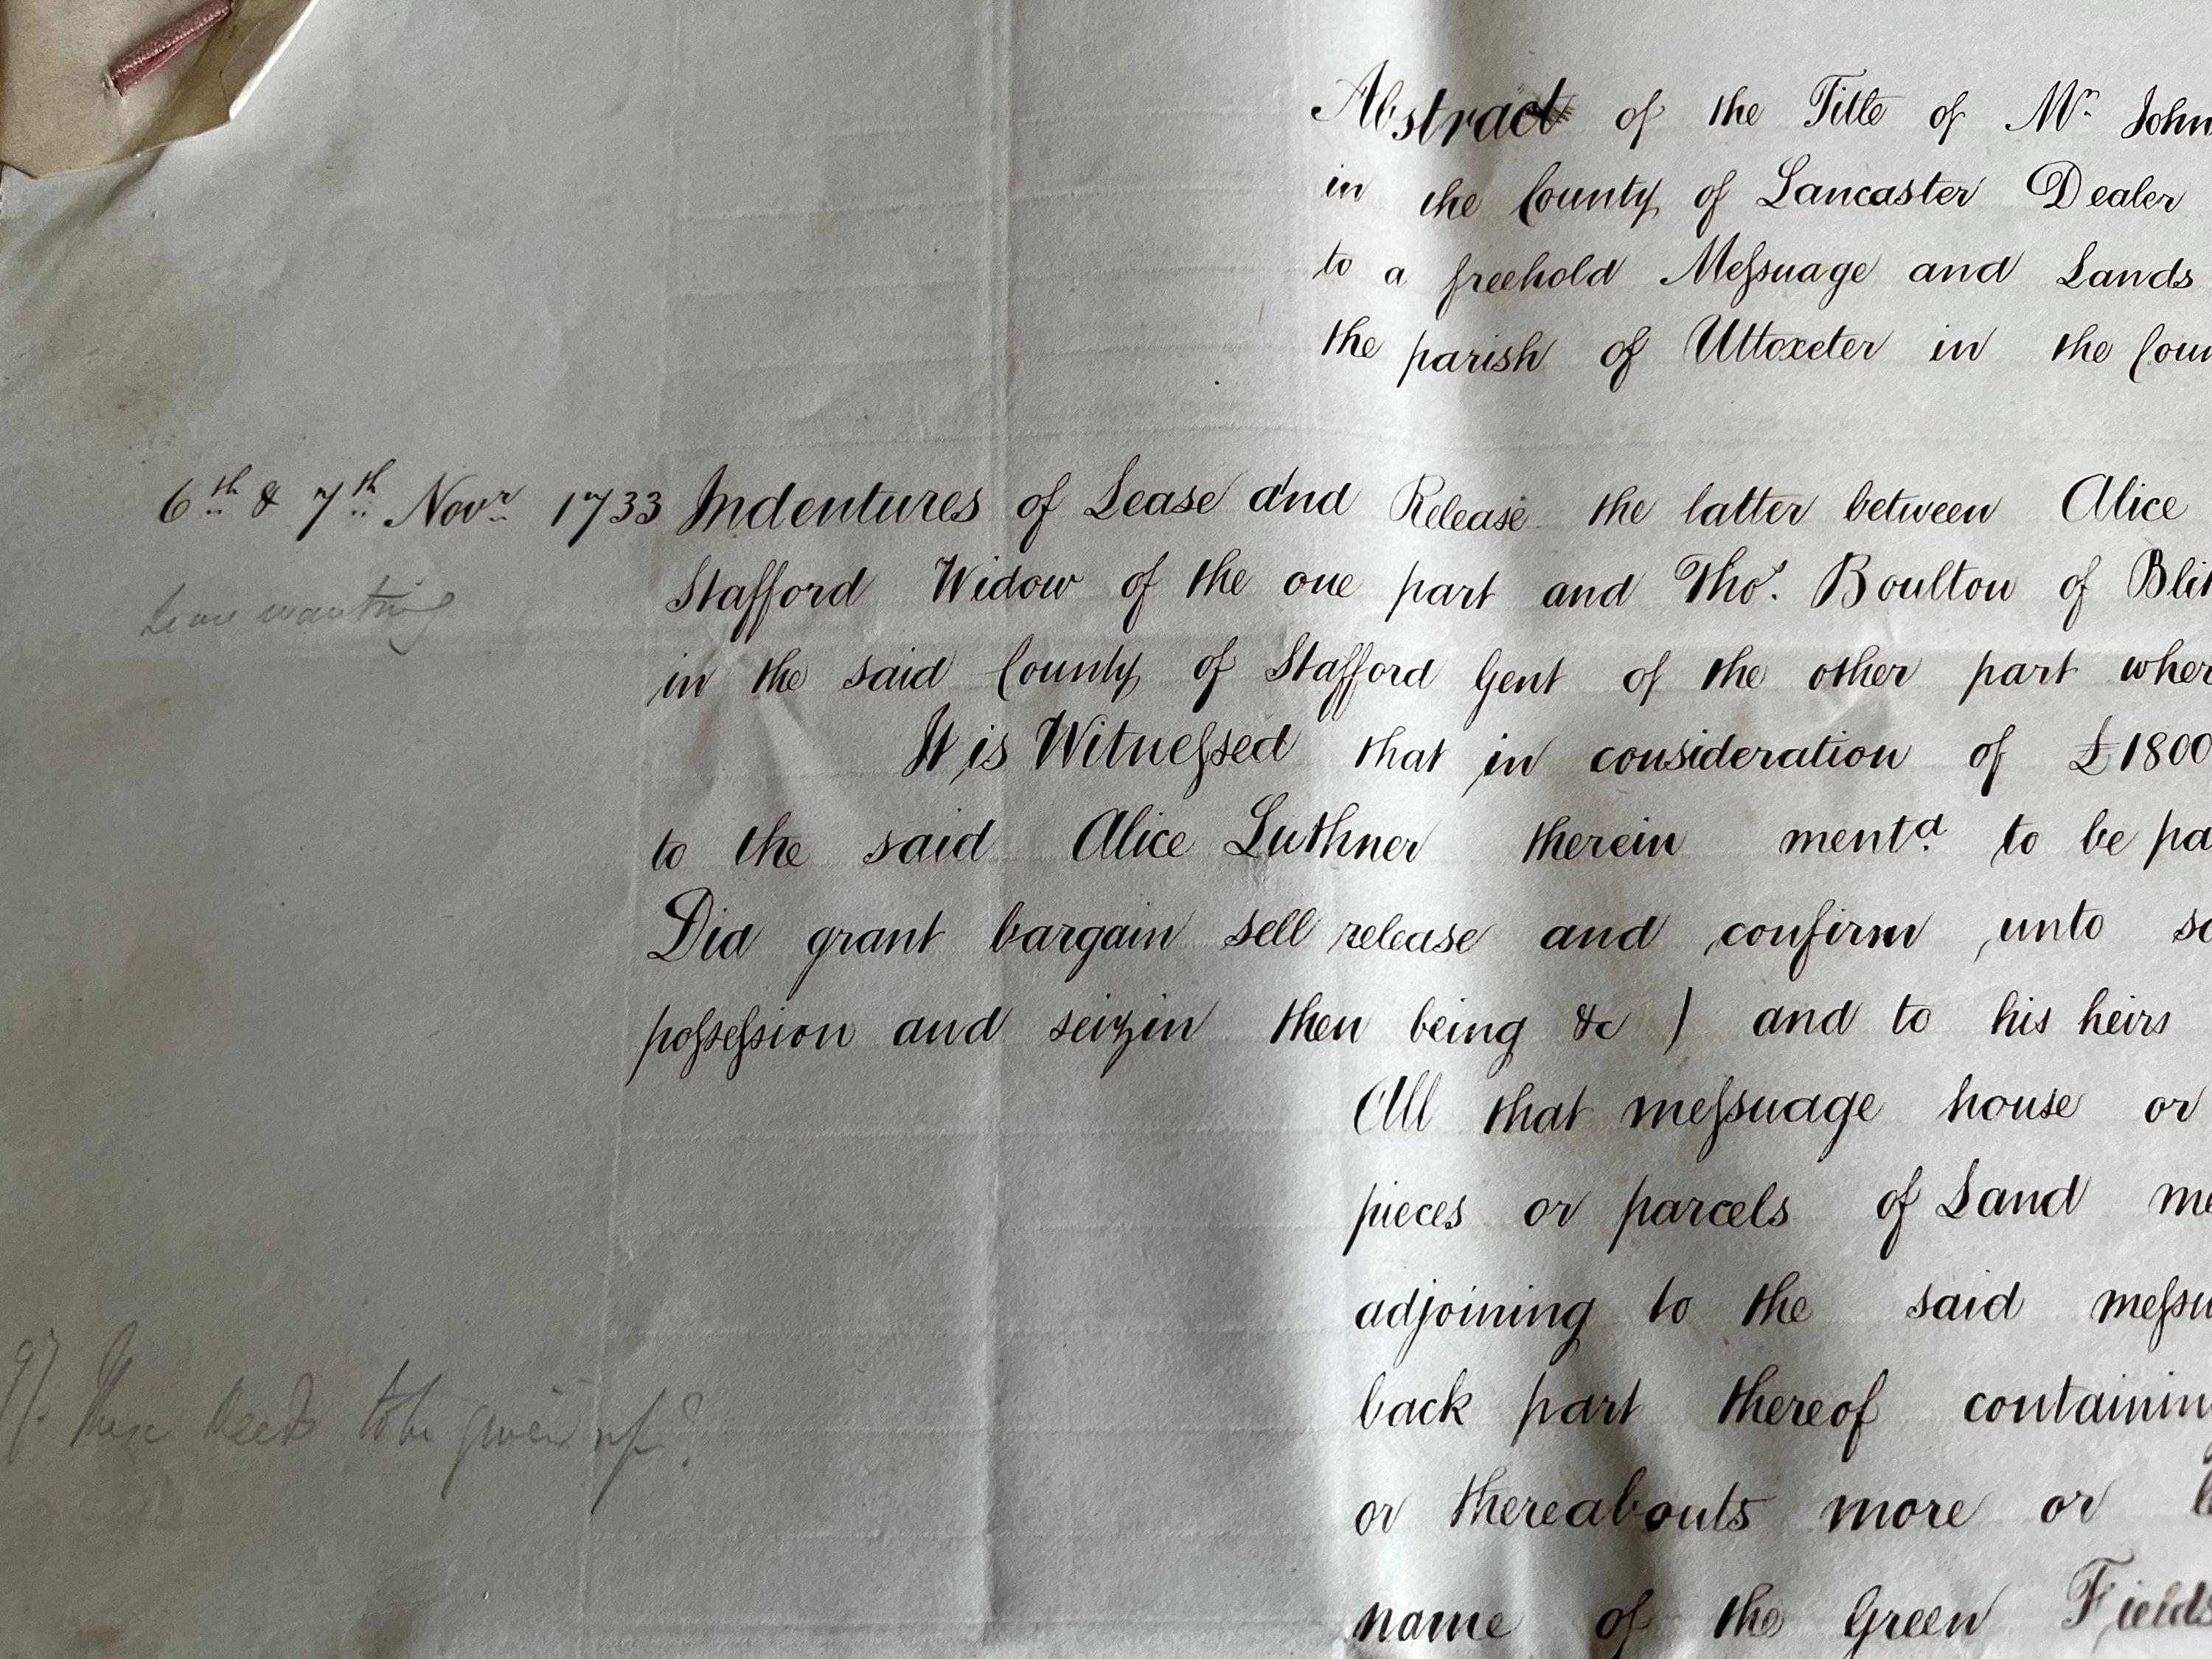 Abstract of the Title of Mr. John
in the County of Lancaster Dealer
to a freehold Meſsuage and Lands
the parish of Uttoxeter in the Coun
6th & 7th Novr 1733 Indentures of Lease and Release the latter between Alice
Lease wanting
Stafford Widow of the one part and Thos. Boulton of Blit
in the said County of Stafford Gent of the other part wher
It is Witneſsed that in consideration of £1800
to the said Alice Luthner therein mentd. to be pa
Did grant bargain sell release and confirm unto sa
poſseſsion and seizin then being &c ) and to his heirs
All that meſsuage house or
pieces or parcels of Land me
adjoining to the said meſsu
back part thereof containin
These deeds to be given up?
or thereabouts more or
name of the Green Fields